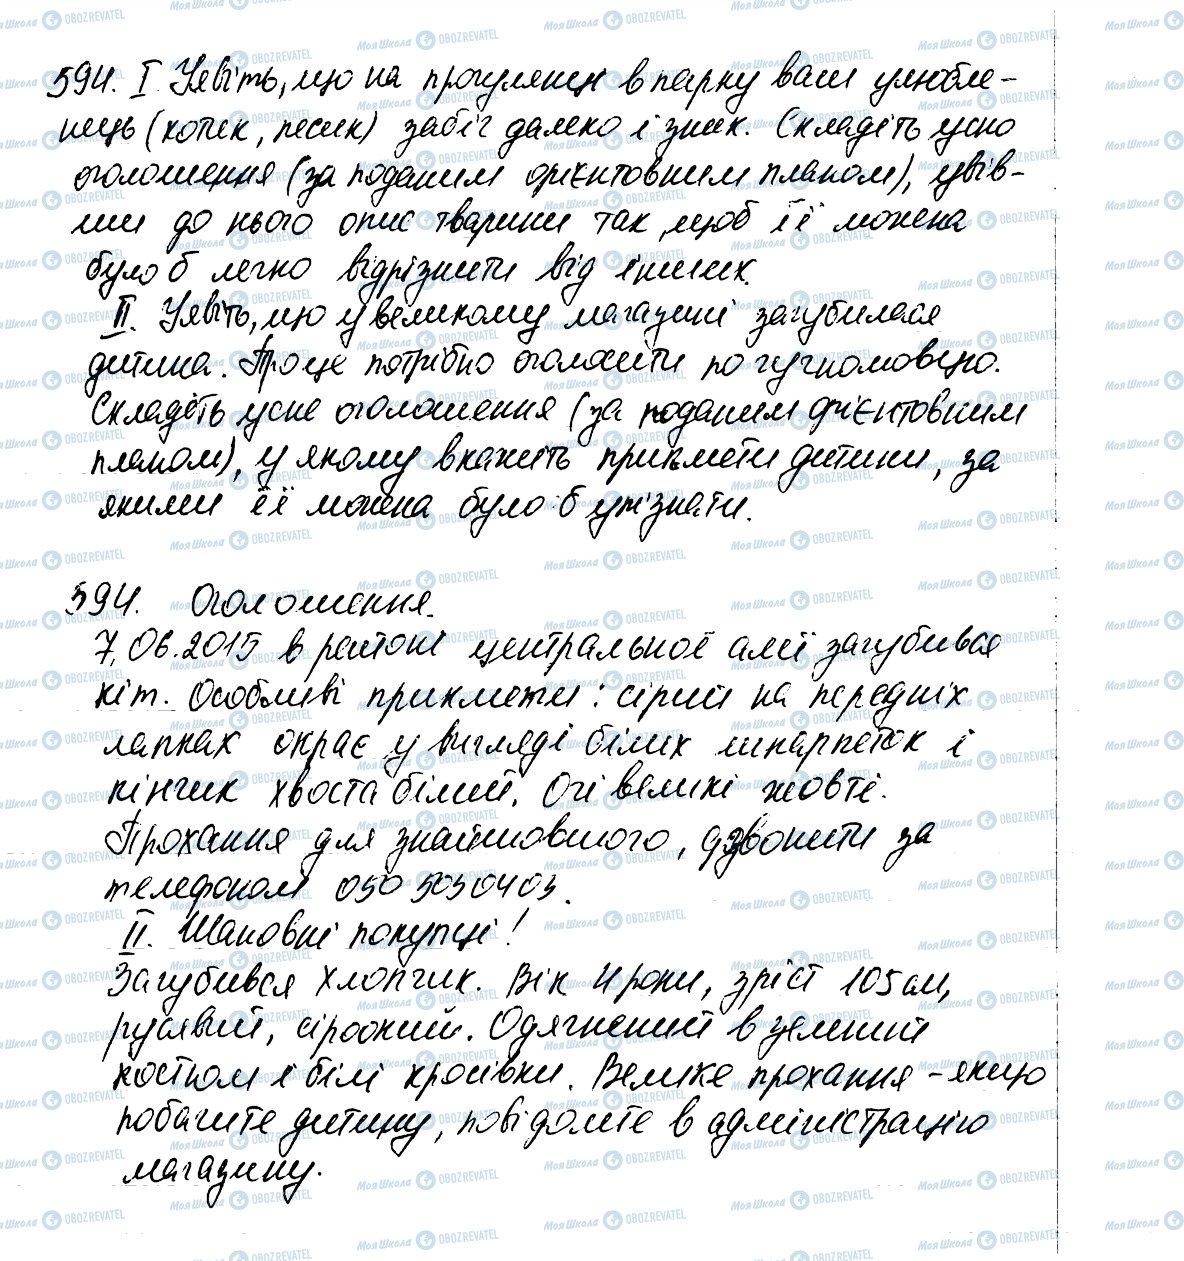 594. I Уявіть, що на прогулянці в парку ваш улюбле-
нець (котик, песик) забіг далеко і зник. Складіть усно
оголошення (за поданим орієнтовним планом), увів-
ши до нього опис тварини так, щоб її можна
було б легко відрізнити від інших.
II. Уявіть, що у великому магазині загубилася
дитина. Про це потрібно оголосити по гучномовцю.
Складіть усне оголошення (за поданим орієнтовним
планом), у якому вкажіть прикмети дитини, за
якими її можна було б упізнати.
594. Оголошення.
7.06.2015 в районі центральної алеї загубився
кіт. Особливі прикмети: сірий на передніх
лапках окрас у вигляді білих шкарпеток і
кінчик хвоста білий. Очі великі жовті.
Прохання для знайшовшого, дзвонити за
телефоном 050 5050403.
II. Шановні покупці!
Загубився хлопчик. Вік 4 роки, зріст 105 см,
русявий, сіроокий. Одягнений в зелений
костюм і білі кросівки. Велике прохання – якщо
побачите дитину, повідомте в адміністрацію
магазину.